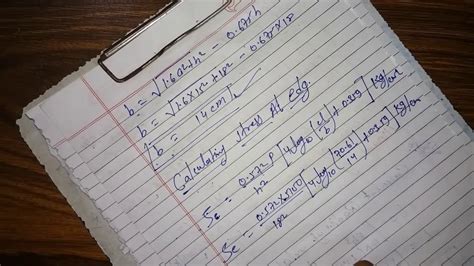 b = √1.6a²+h² - 0.675h
b = √1.6×15²+18² - 0.675×18
b = 14 cm
Calculating stress At edg.
Se = 0.572P/h² [4log₁₀(l/b) + 0.359] kg/cm²
Se = 0.572×5100/18² [4log₁₀(70.61/14) + 0.359] kg/cm²